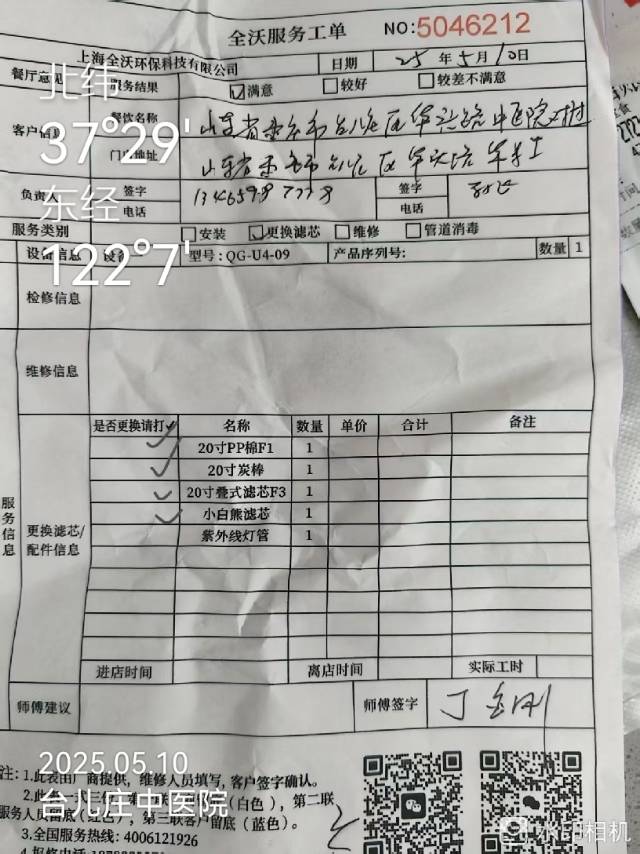 全沃服务工单 NO:5046212
上海全沃环保科技有限公司 日期 25年5月10日
餐厅意见 服务结果 ☑满意 □较好 □较差不满意
北纬
客户信息 餐饮名称 山东省枣庄市台儿庄区 中医院
37°29′
门店地址 山东省枣庄市台儿庄区
负责人 签字 签字
东经
电话 13465987778 电话
服务类别 □安装 ☑更换滤芯 □维修 □管道消毒
122°7′
设备信息 设备 型号:QG-U4-09 产品序列号: 数量 1
检修信息
维修信息
是否更换请打✓ 名称 数量 单价 合计 备注
✓ 20寸PP棉F1 1
✓ 20寸炭棒 1
✓ 20寸叠式滤芯F3 1
✓ 小白熊滤芯 1
紫外线灯管 1
服务信息
更换滤芯/
配件信息
进店时间 离店时间 实际工时
师傅建议 师傅签字 丁金刚
2025.05.10
注:1.此表由厂商提供，维修人员填写,客户签字确认。
台儿庄中医院
2.此 联（白色），第二联
服务人员留底（ ），第三联客户留底（蓝色）。
3.全国服务热线: 4006121926
4.报修电话
水印相机